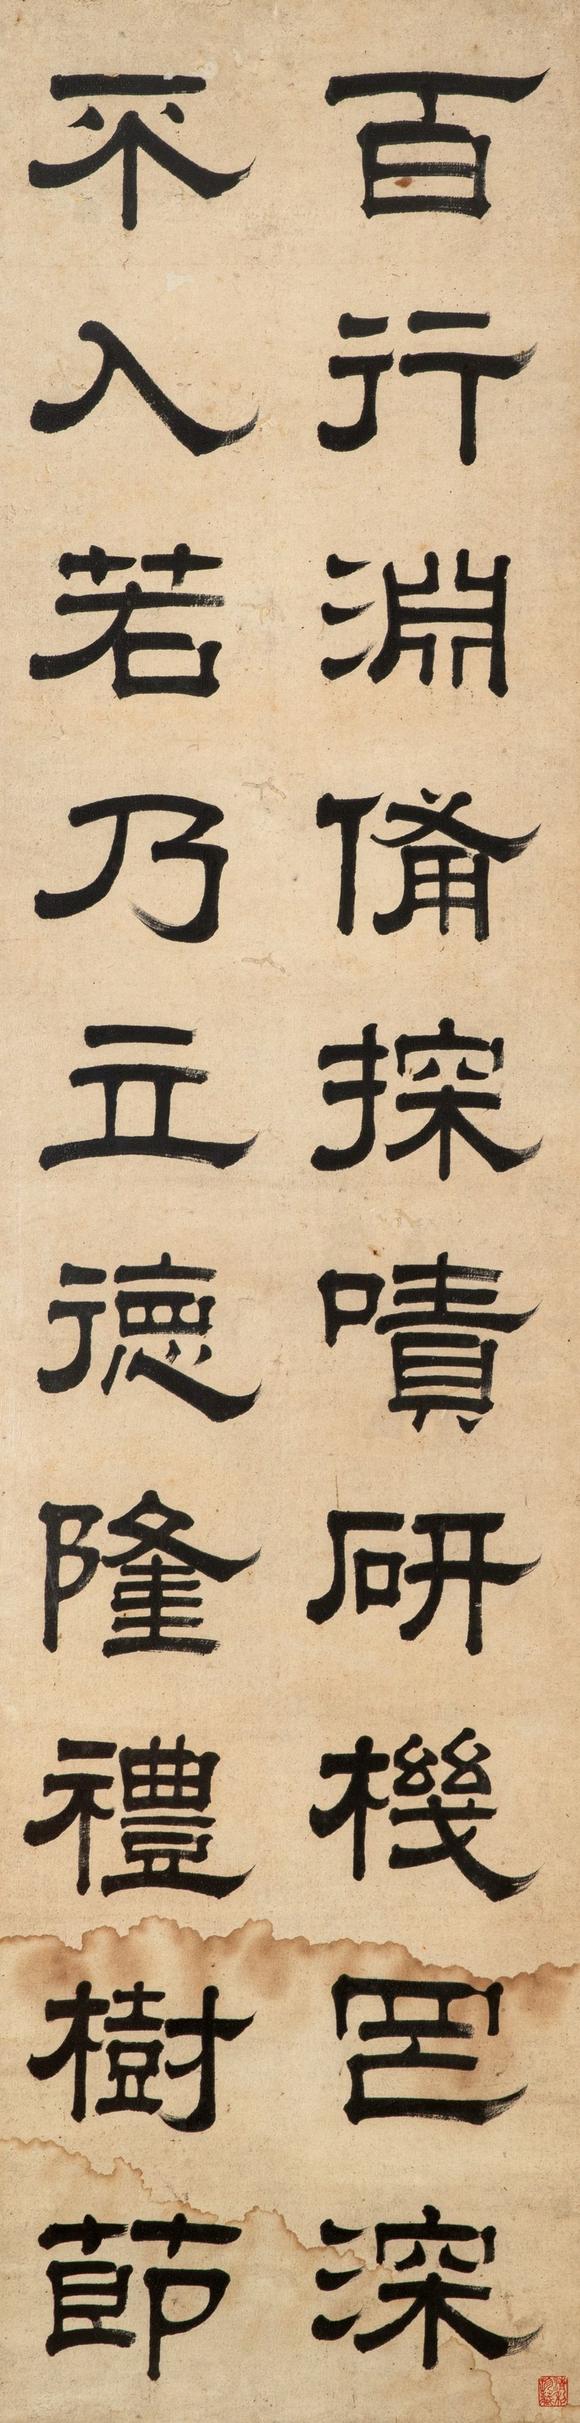 百行淵備探嘖研機罔深
不入若乃立德隆禮樹節